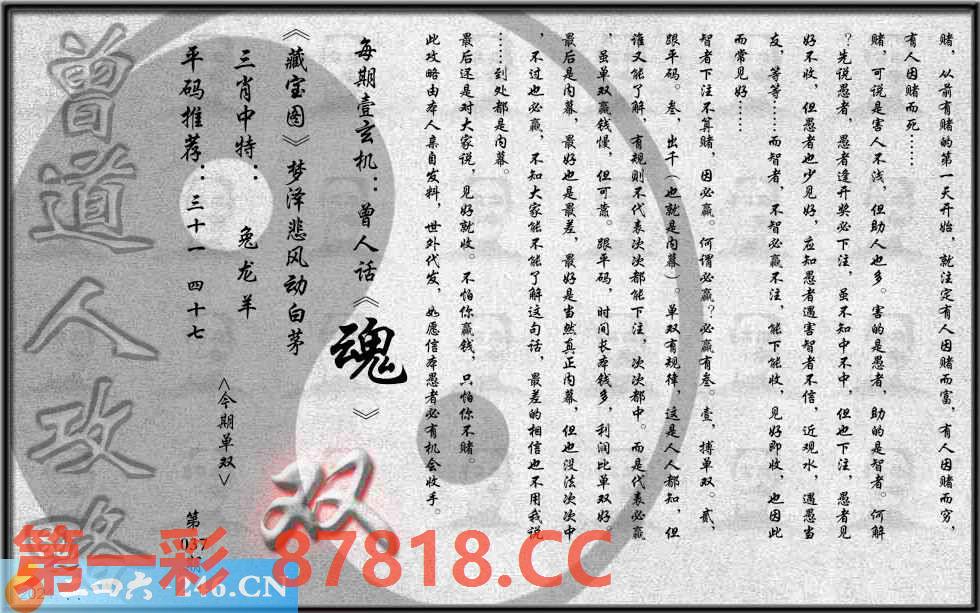 赌，从前有赌的第一天开始，就注定有人因赌而富，有人因赌而穷，
有人因赌而死……
赌，可说是害人不浅，但助人也多。害的是愚者，助的是智者。何解
？先说愚者，愚者逢开奖必下注，虽不知中不中，但也下注，愚者见
好不收，但愚者也少见好，应知愚者遇害智者不信，近观水，遇愚当
友，等等……而智者，不智必赢不注，能下能收，见好即收，也因此
而常见好……
智者下注不算赌，因必赢。何谓必赢？必赢有叁。壹，搏单双。贰，
跟平码。叁，出千（也就是内幕）。单双有规律，这是人人都知，但
谁又能了解，有规则不代表次次都能下注，次次都中。而是代表必赢
，虽单双赢钱慢，但可靠。跟平码，时间长本钱多，利润比单双好。
最后是内幕，最好也是最差，最好是当然真正内幕，但也没法次次中
，不过也必赢，不知大家能不能了解这句话，最差的相信也不用我说
……到处都是内幕。
最后还是对大家说，见好就收。不怕你赢钱，只怕你不赌。
此攻略由本人亲自发料，世外代发，如愿信本愚者必有机会收手。
每期壹玄机：曾人话《魂》
《藏宝图》梦泽悲风动白茅
三肖中特：兔龙羊
平码推荐：三十一 四十七
<今期单双>
双
第
037
期
曾道人攻略
第一彩 87818.CC
二四六 246.CN